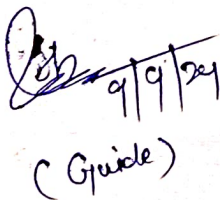 9/9/24
(Guide)